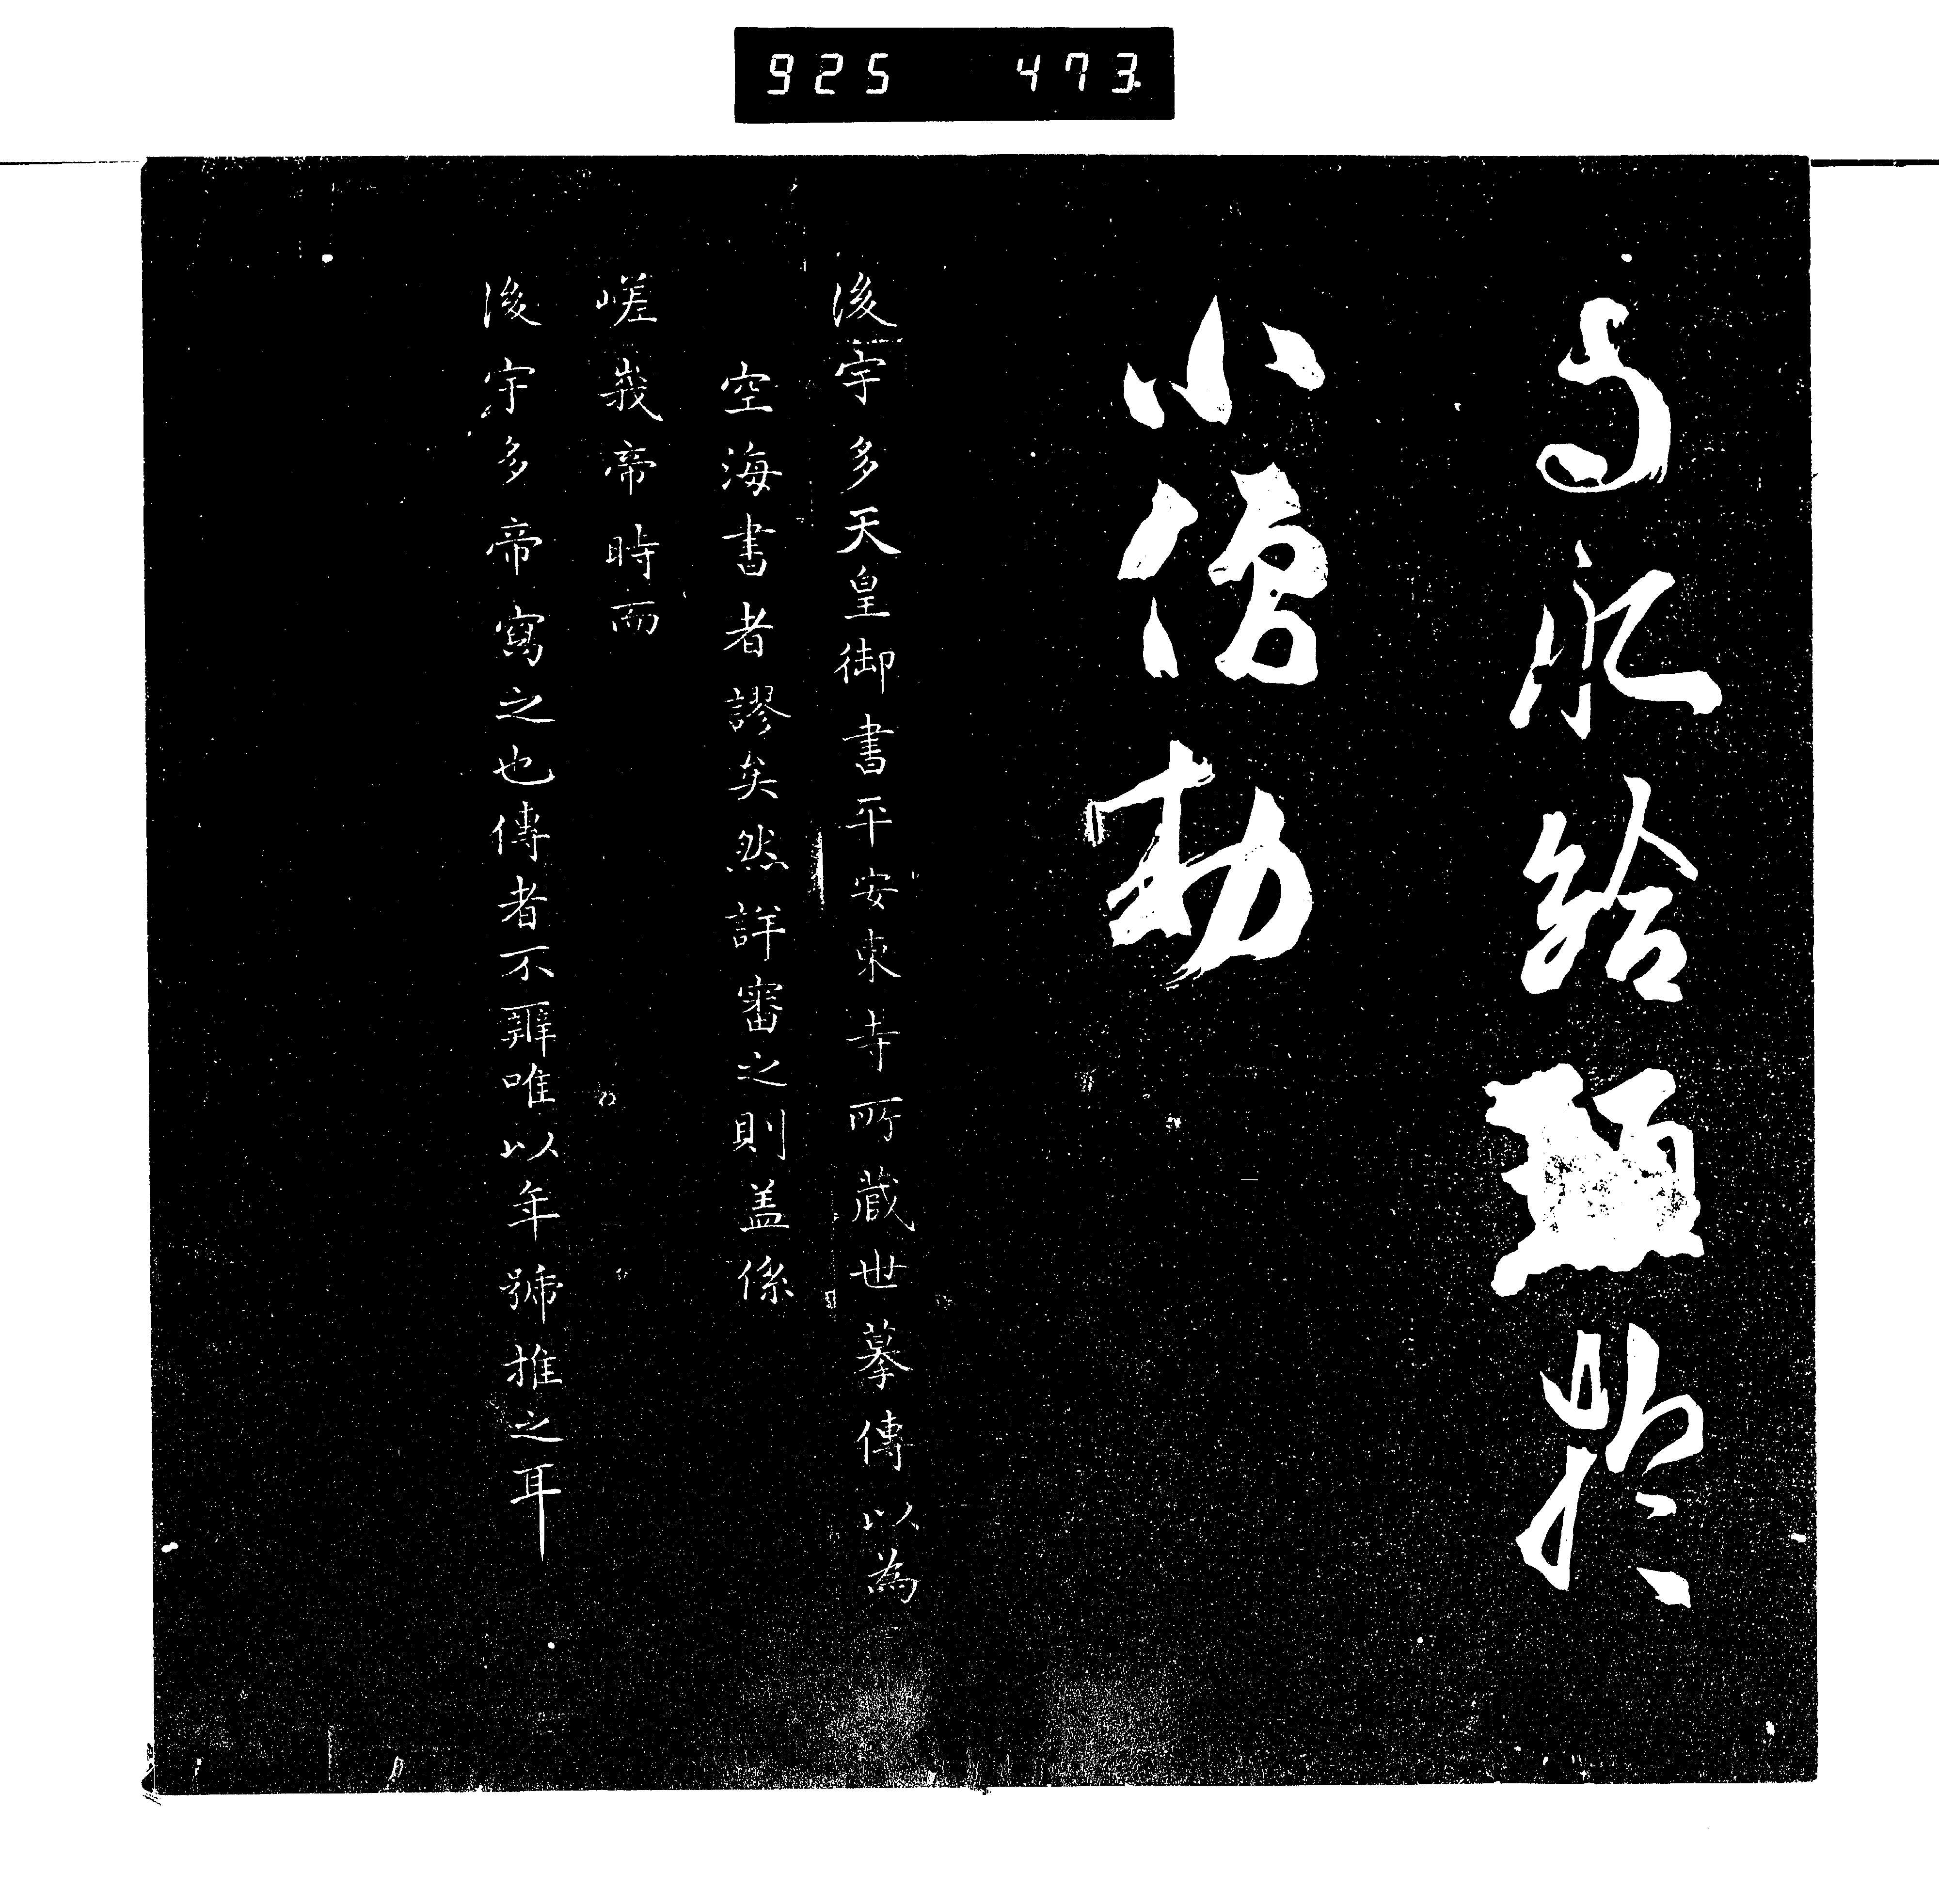 925 473.
与永給於
小勅
後宇多天皇御書平安東寺所蔵世摹傳以為
空海書者謬矣然詳審之則盖係
嵯峩帝時而
後宇多帝寫之也傳者不唯以年號推之耳